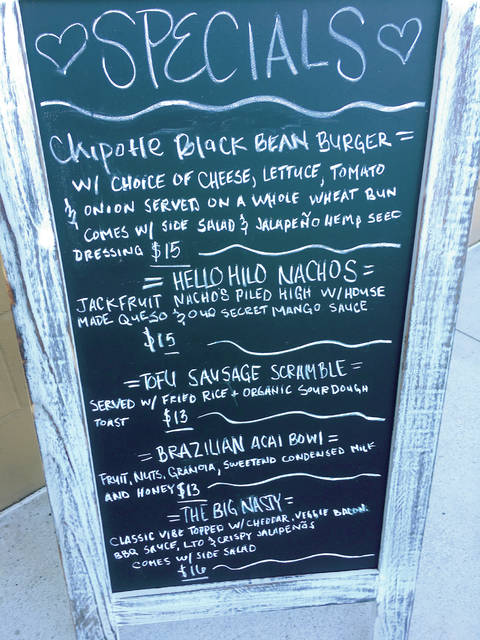 SPECIALS
Chipotle Black BEAN BURGER =
W/ CHOICE OF CHEESE, LETTUCE, TOMATO
& ONION SERVED ON A WHOLE WHEAT BUN
COMES W/ SIDE SALAD & JALAPEÑO HEMP SEED
DRESSING $15
= HELLO HILO NACHOS =
JACKFRUIT NACHOS PILED HIGH W/ HOUSE
MADE QUESO & OUR SECRET MANGO SAUCE
$15
=TOFU SAUSAGE SCRAMBLE=
SERVED W/ FRIED RICE + ORGANIC SOURDOUGH
TOAST $13
= BRAZILIAN ACAI BOWl =
FRUIT, NUTS, GRANOLA, SWEETEND CONDENSED MILK
AND HONEY $13
=THE BIG NASTY=
CLASSIC VIBE TOPPED W/ CHEDDAR, VEGGIE BACON,
BBQ SAUCE, LTO & CRISPY JALAPEÑOS
COMES W/ SIDE SALAD
$16